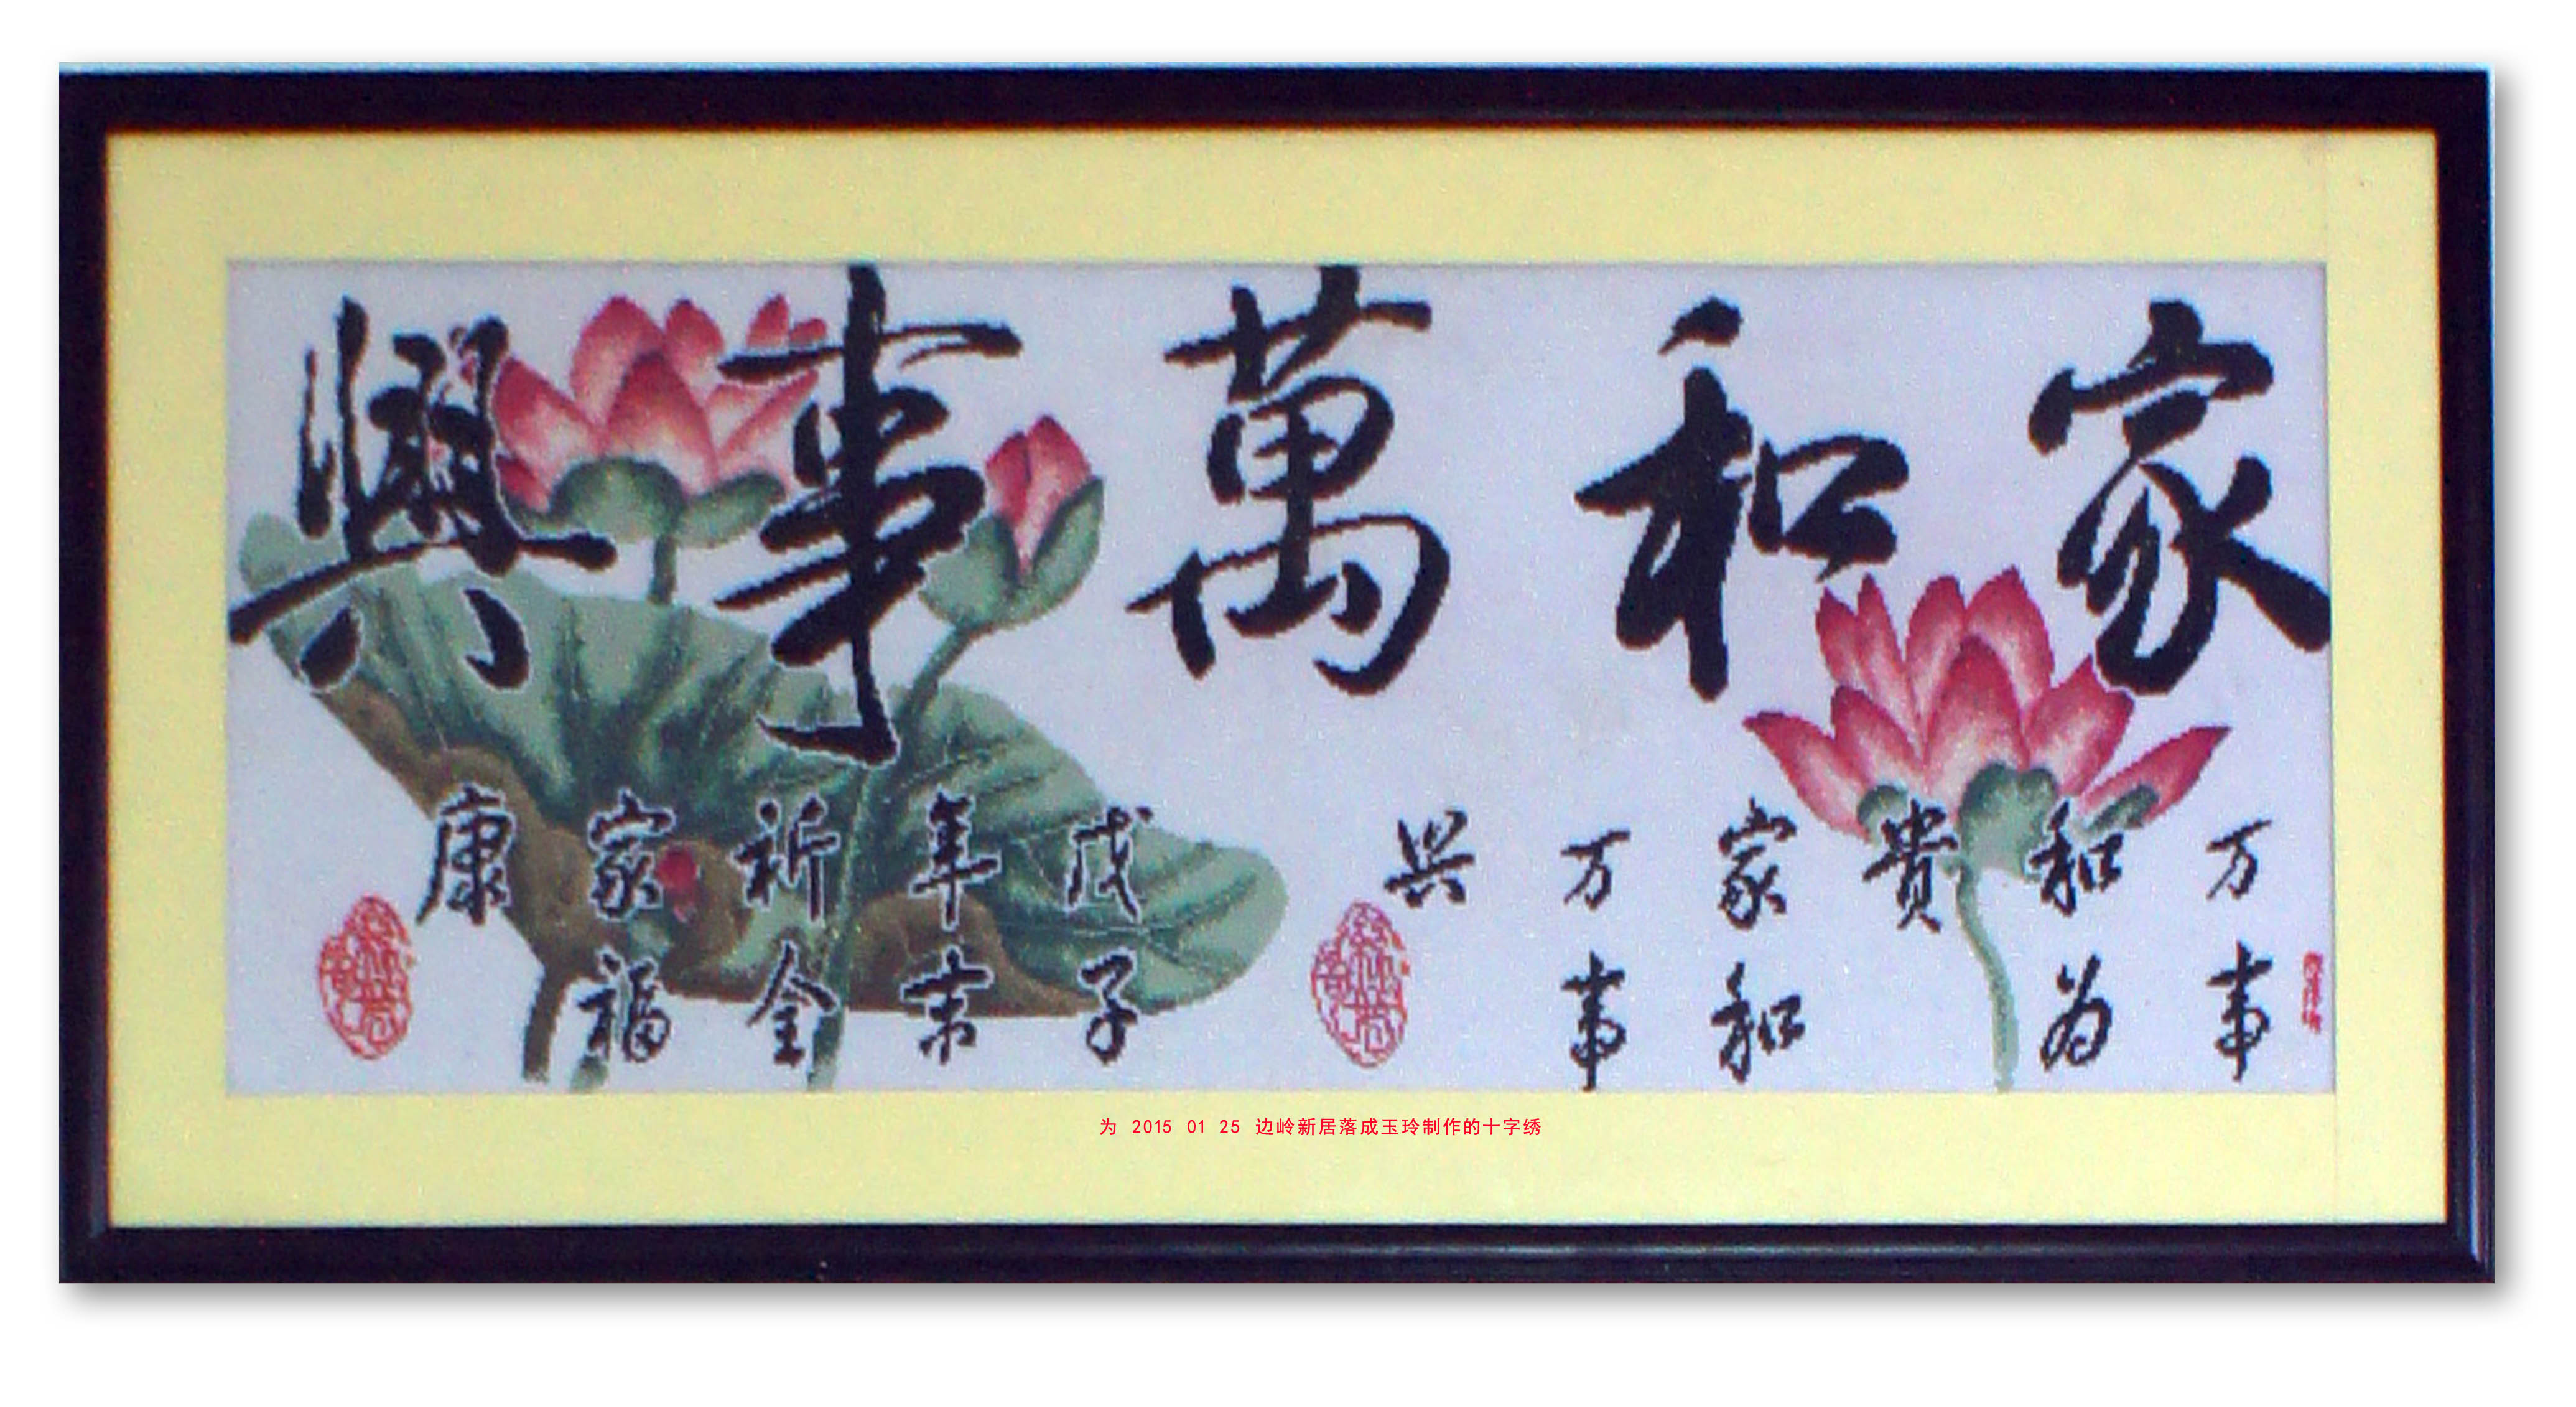 家和萬事興
万事
和为
贵
家和
万事
兴
戊子
年末
祈全
家福
康
为 2015 01 25 边岭新居落成玉玲制作的十字绣